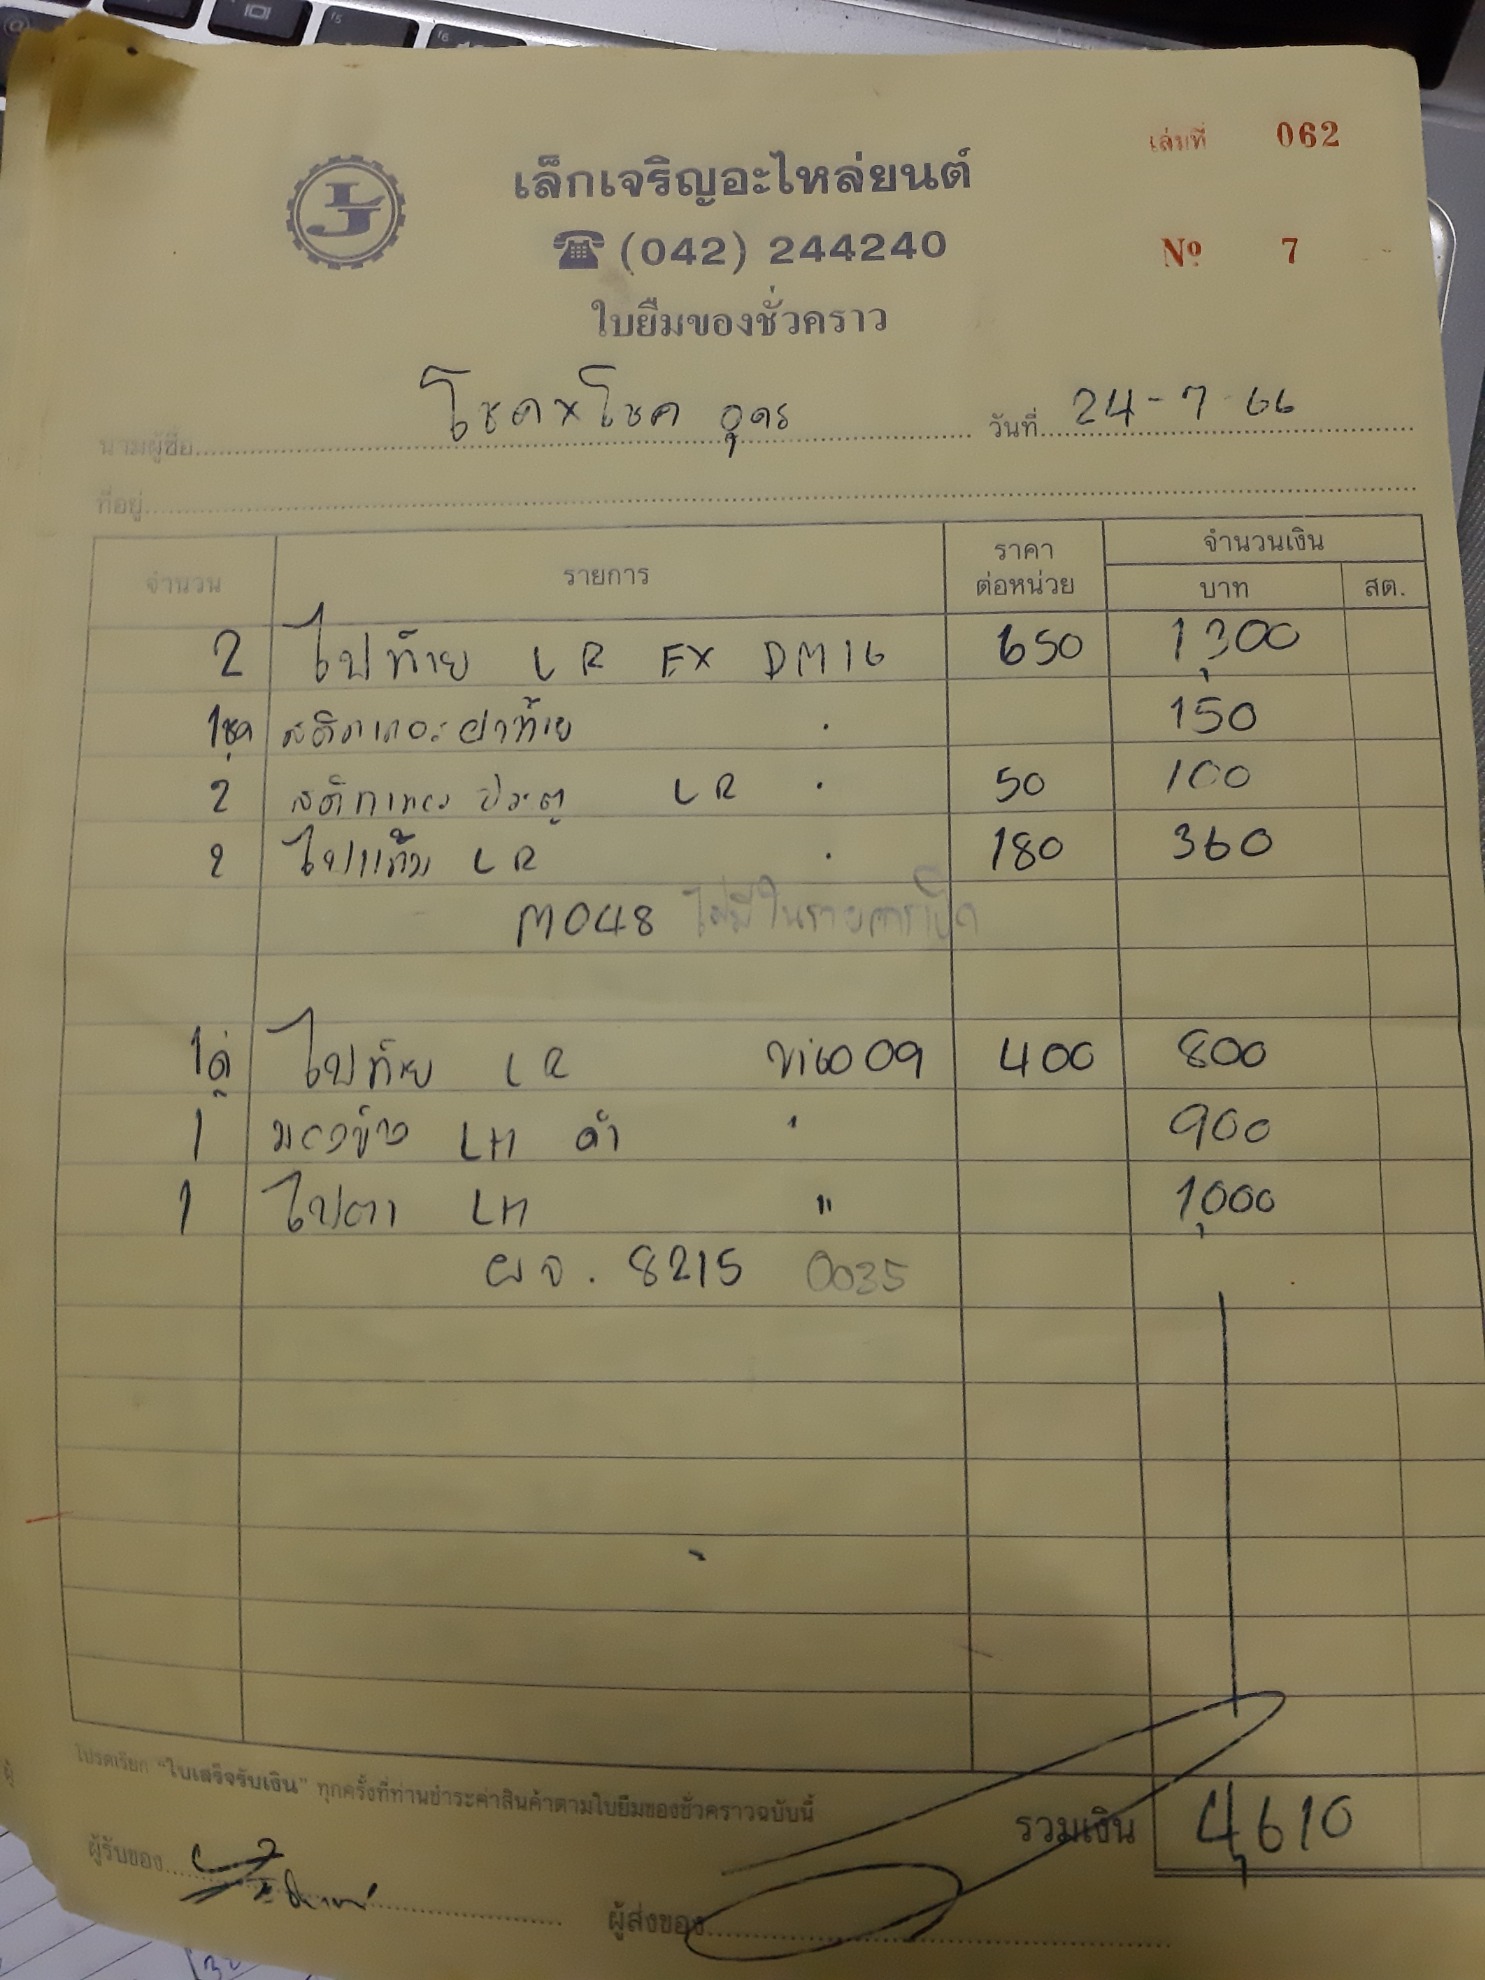 เล่มที่ 062
เล็กเจริญอะไหล่ยนต์
(042) 244240
Nº 7
ใบยืมของชั่วคราว
นามผู้ซื้อ โชค x โชค อุดร วันที่ 24-7-66
ที่อยู่
จำนวน รายการ ราคาต่อหน่วย จำนวนเงิน บาท สต.
2 ไฟท้าย LR EX DM16 650 1,300
1ชุด สติกเกอร์ฝาท้าย 150
2 สติกเกอร์ ประตู LR 50 100
2 ไฟแก้ม LR 180 360
M048 ไม่มีในรายการเปิด
1คู่ ไฟท้าย LR Vigo 09 400 800
1 มองข้าง LH ดำ " 900
1 ไฟตา LH " 1,000
ผจ. 8215 0035
โปรดเรียก "ใบเสร็จรับเงิน" ทุกครั้งที่ท่านชำระค่าสินค้าตามใบยืมของชั่วคราวฉบับนี้
รวมเงิน 4,610
ผู้รับของ
ผู้ส่งของ